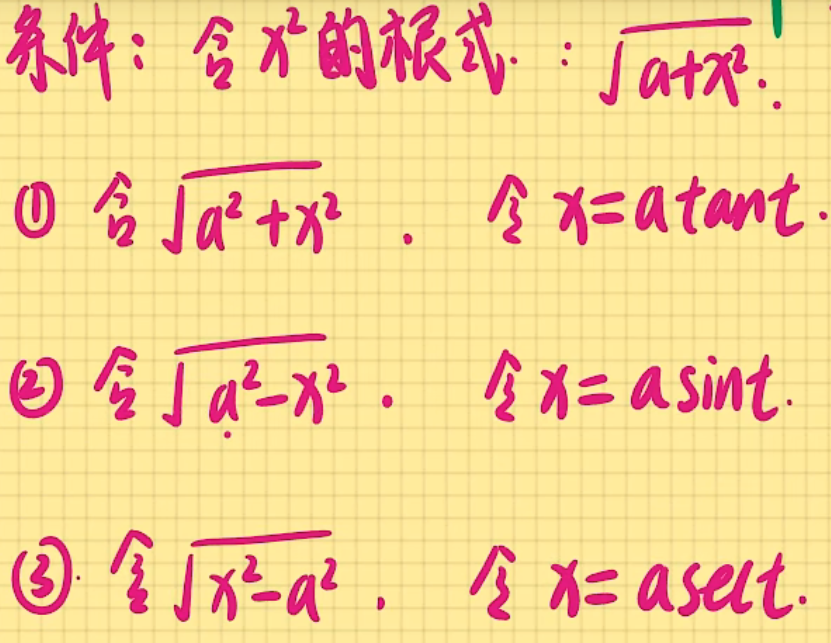 条件: 含x²的根式. : √(a+x²).
① 含√(a²+x²) . 令 x=a tant.
② 含√(a²-x²) . 令 x= a sint.
③. 含√(x²-a²) . 令 x= a sect.